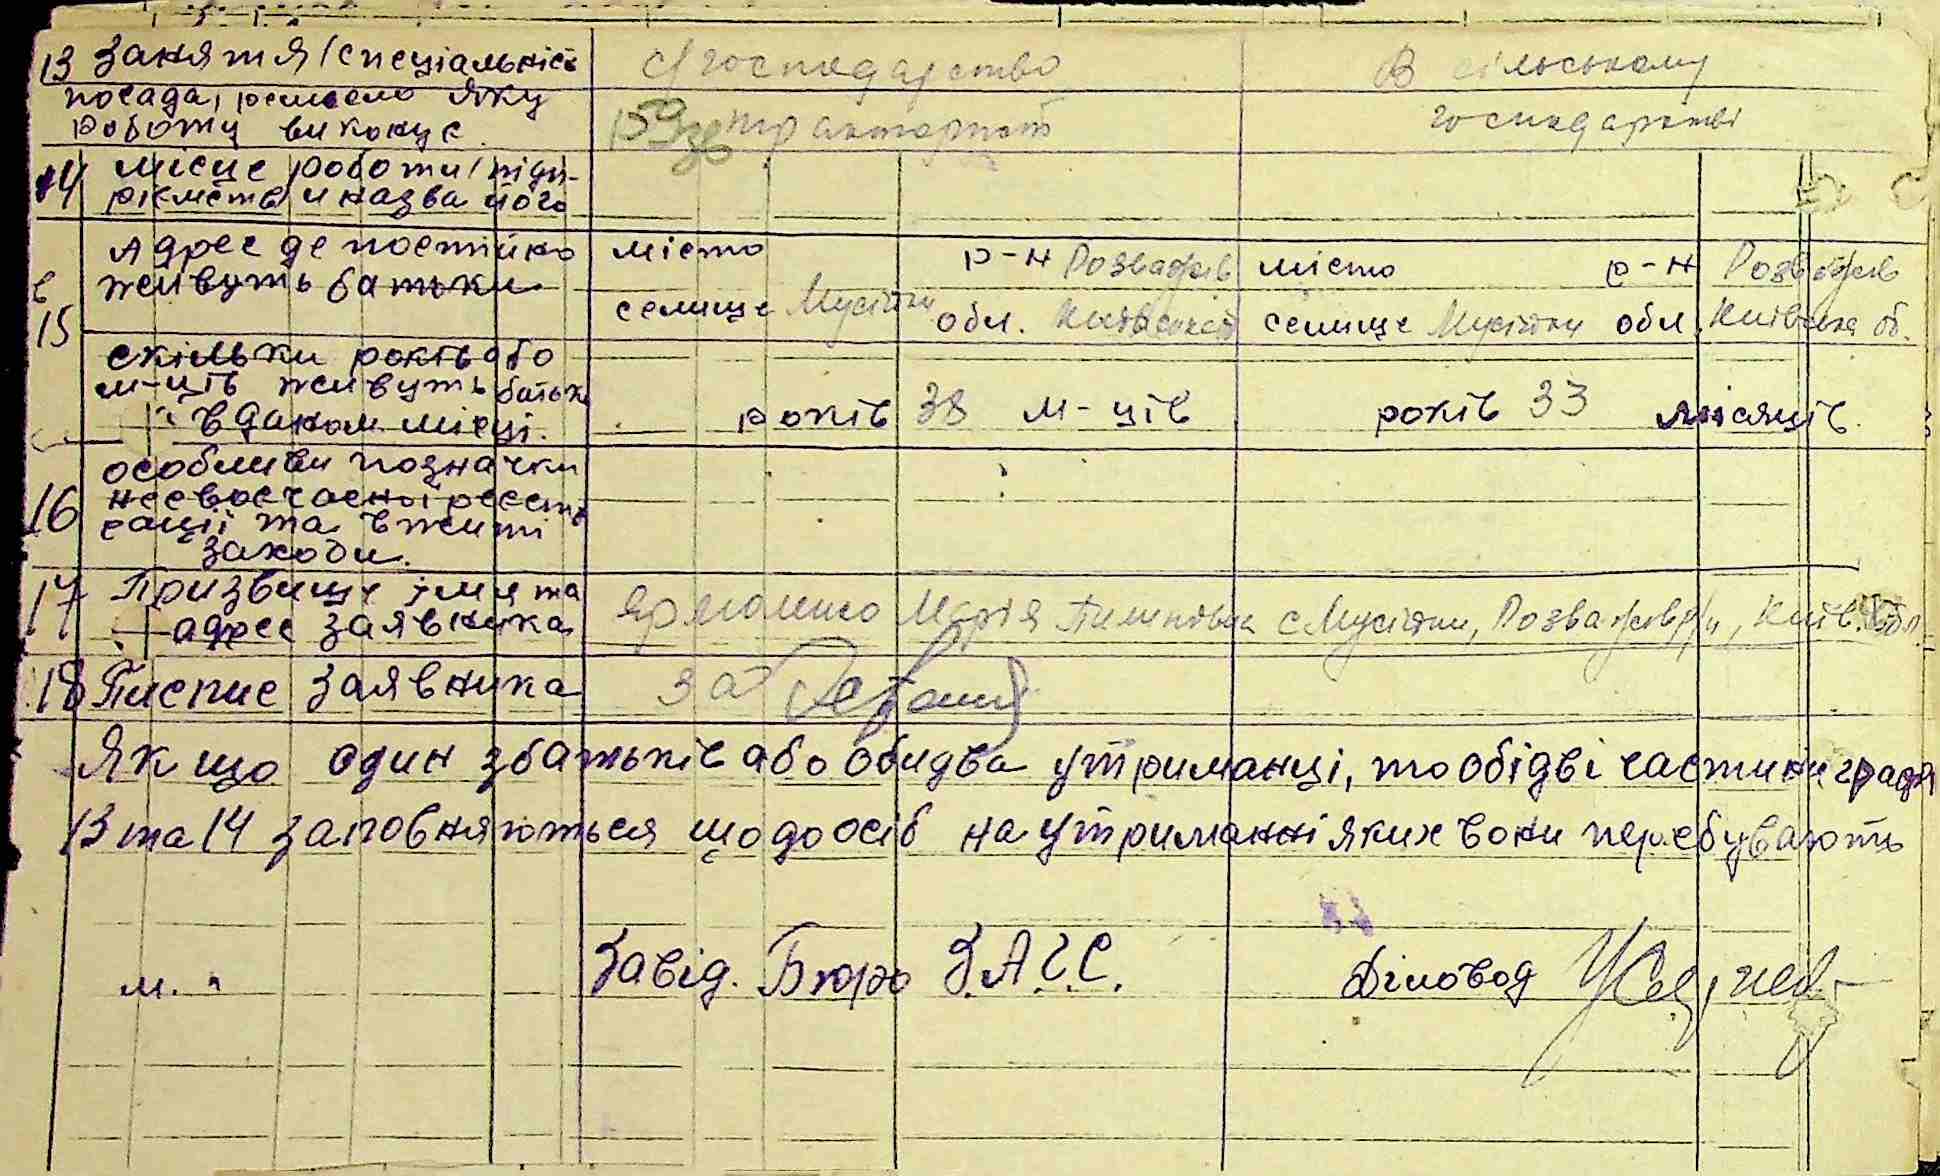 13 Заняття /спеціальність с/господарство В сільському
посада, ремесло яку господарстві
роботу виконує тракторист
14 місце роботи /підп-
риємств и назва його
Адрес де постійно місто р-н Розважів місто р-н Розважів
15 живуть батьки селище Мусійки обл. Київської селище Мусійки обл. Київська об.
скільки років або
м-ців живуть батьки років 38 м-ців років 33 місяців
в даном місці.
особливи позначки
16 несвоєчасної реєст
рації та вжиті
заходи.
17 Призвище імя та Ярмоленко Марія Пилиповна с Мусійки, Розважів р/н, Київ. обл
адрес заявника
18 Писпис заявника за
Якщо один з батьків або обидва утриманці, то обідві частини графи
13 та 14 заповняються щодо осіб на утриманні яких вони перебувають
м. п Завід. Бюро З.А.Г.С. Діловод